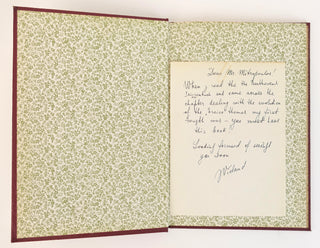 Dear Mr. Mitropoulos!
When I read the the Beethoven
and came across the
chapter dealing with the evolution
of the "Eroica" themes my first
thought was – you must have
this book!
Looking forward of seeing
you soon